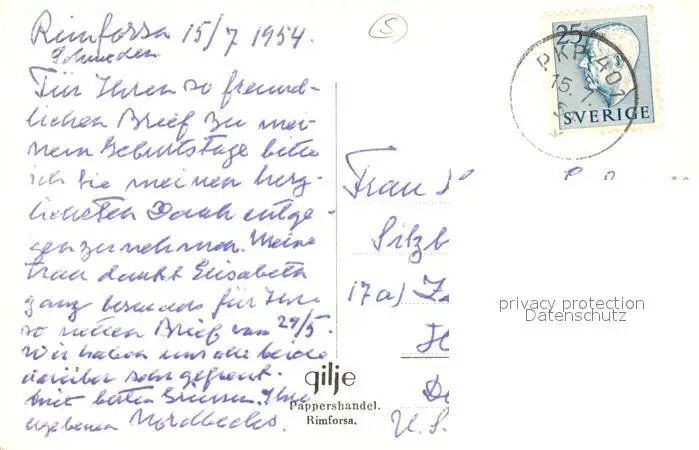 Rimforsa 15/7 1954.
Schweden
Für Ihren so freund-
lichen Brief zu mei-
nem Geburtstage bitte
ich Sie meinen herz-
lichsten Dank entge-
genzunehmen. Meine
Frau dankt Elisabeth
ganz besonders für Ihren
so netten Brief vom 29/5.
Wir haben uns alle beide
darüber sehr gefreut.
Mit besten Grüssen. Ihre
ergebenen Nordbecks.
S
25
PKP 407
15.7.
SVERIGE
Frau
Sitzb
17a)
U.S.
privacy protection
Datenschutz
gilje
Pappershandel.
Rimforsa.